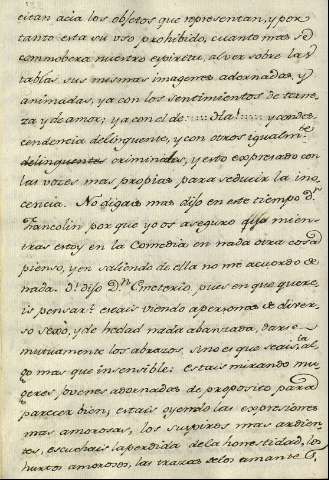 citan acia los objetos que representan, y por
tanto esta su vso prohibido, cuanto mas se
commobera nuestro espiritu, al ver sobre las
tablas sus mesmas imagenes adornadas, y
animadas, ya con los sentimientos de terne-
za y de amor; ya con el de ya condes-
cendencia delinquente, y con otros igualm.te
delinquentes criminales, y esto expresado con
las vozes mas propias para seducir la ino-
cencia. No digais mas dijo en este tiempo D.n
Chancolin por que yo os aseguro que mien-
tras estoy en la Comedia en nada otra cosa
pienso, y en saliendo de ella no me acuerdo de
nada. Y dijo D.n Emeterio, pues en que quere-
is pensar? estais viendo a personas de diver-
so sexo, y de hedad nada abanzada, darse
mutuamente los abrazos, sino es que seais al-
go mas que insensible: estais mirando mu-
geres jovenes adornadas de proposito para
parecer bien, estais oyendo las expresiones
mas amorosas, los suspiros mas ardien-
tes, escuchais la perdida de la honestidad, los
hurtos amorosos, las trazas de los amantes